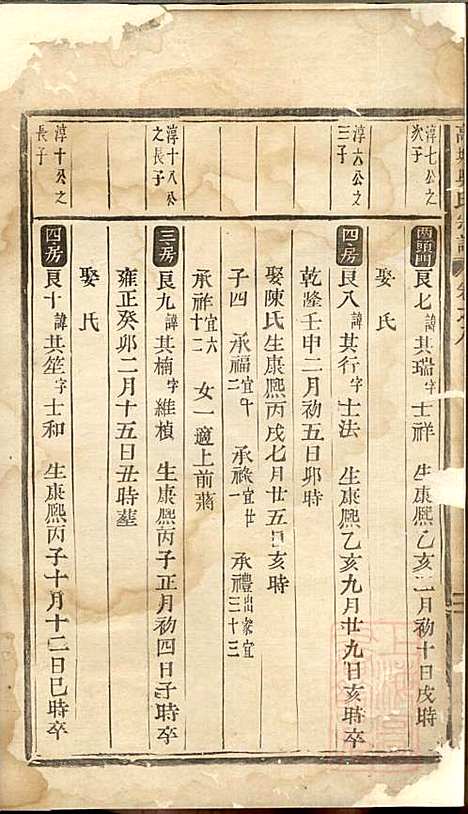 淳七公之
次子
两頭門
艮七諱其瑞字士祥 生康熙乙亥二月初十日戌時
娶氏
淳六公之
三子
四房
艮八諱其行字士法 生康熙乙亥九月廿九日亥時卒
乾隆壬申二月初五日卯時
娶陳氏生康熙丙戌七月廿五日亥時
子四 承福宜午二 承祿宜廿一 承禮出衆宜三十三
承祚宜六十二 女一適上前蔣
淳十八公
之長子
三房
艮九諱其楠字維楨 生康熙丙子正月初四日子時卒
雍正癸卯二月十五日丑時塟
娶氏
淳十公之
長子
四房
艮十諱其笙字士和 生康熙丙子十月十二日巳時卒